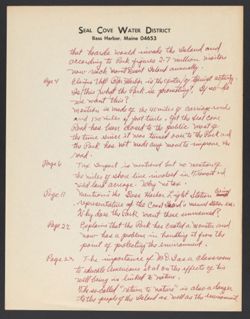 SEAL COVE WATER DISTRICT
Bass Harbor, Maine 04653
that hoards would invade the Island and
according to Park figures 2.7 million visitors
now visit Mount Desert Island annually.
Page 4 Claims that Bar Harbor is the center of tourist activity.
Is this what the Park is promoting? If so do
we want this?
Mention is made of the 45 miles of carriage roads
and 120 miles of foot trails. Yet the Seal Cove
Road has been closed to the public most of
the time since it was turned over to the Park and
the Park has not made any move to improve the
road.
Page 6 Tax impact is mentioned but no mention of
the miles of shore line involved in
and acreage. Why not?
Page 11 Mentions the Bass Harbor Light Station
representative of the Coast Guard's
Why does the Park want these
Page 22 Explains that the Park has created a monster and
now has a problem in handling it from the
point of protecting the environment.
Page 23 The importance of MDI as a classroom
to educate Americans et al on the effects of his
well being is linked to nature.
This so-called "return to nature" is also a danger
to the people of the Island as well as the environment